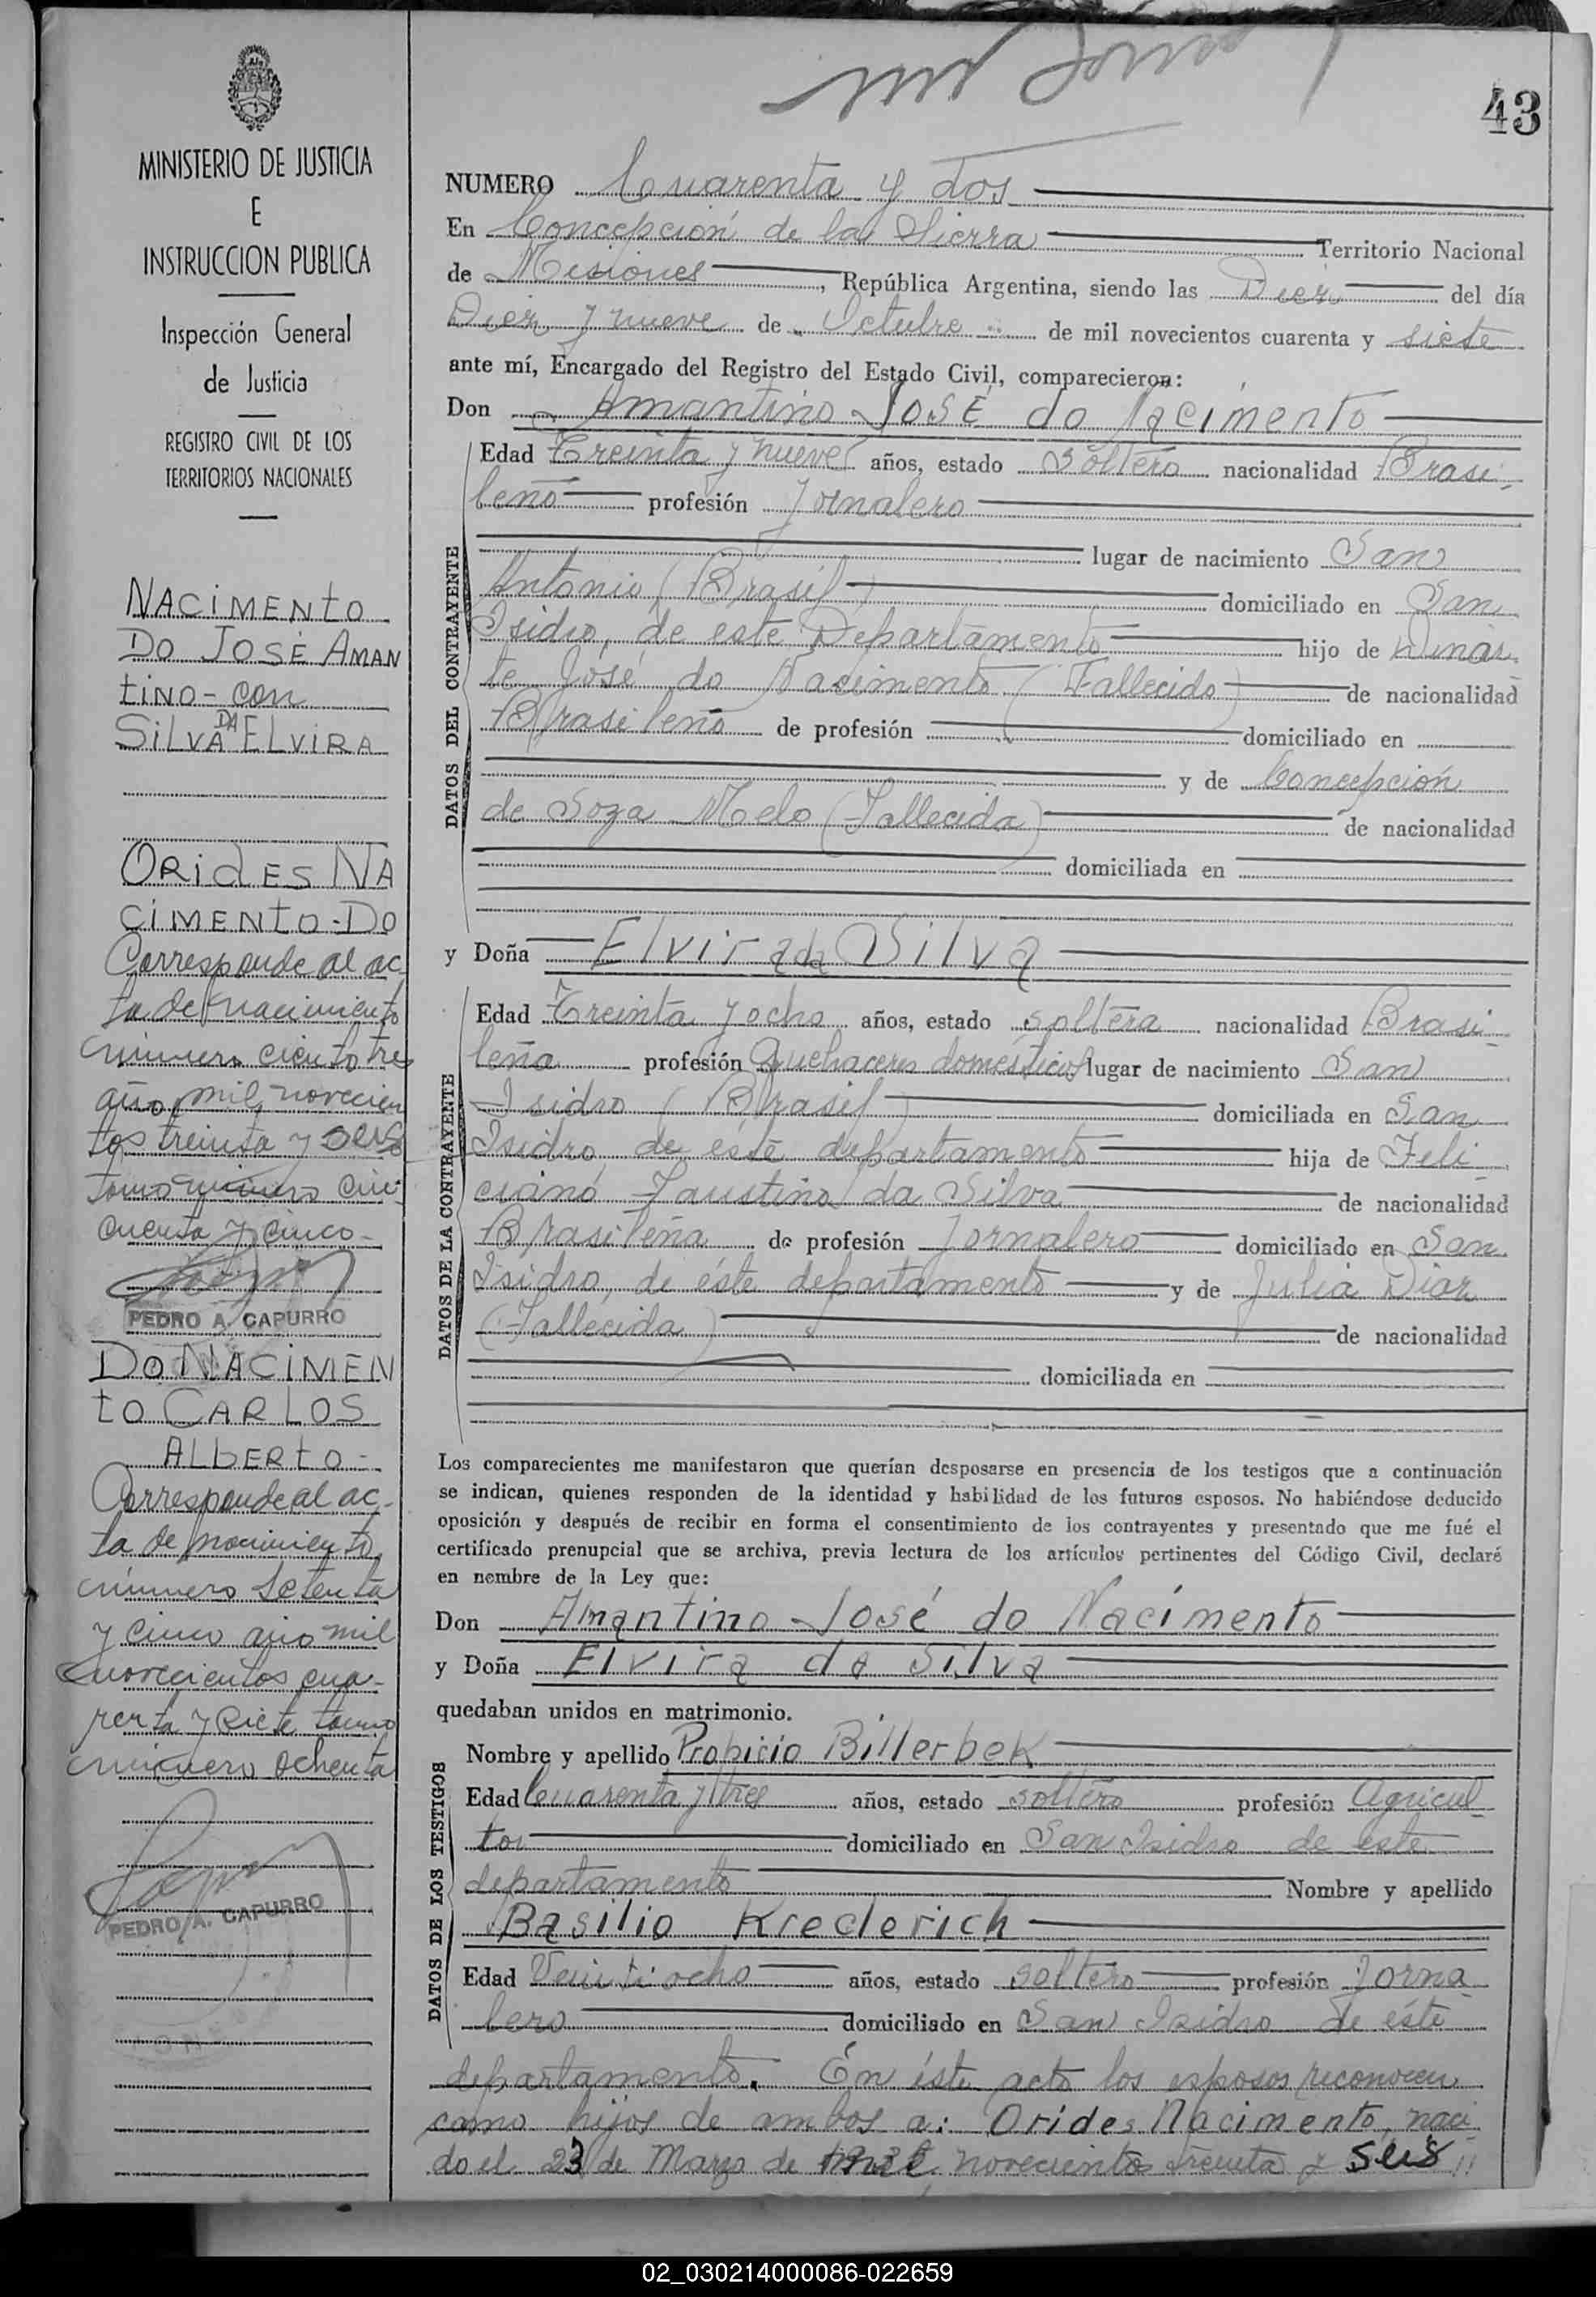 43
MINISTERIO DE JUSTICIA
E
INSTRUCCION PUBLICA
Inspección General
de Justicia
REGISTRO CIVIL DE LOS
TERRITORIOS NACIONALES
NACIMENTO
DO JOSÉ AMAN
tINO - con
SILVA DA ELVIRA
ORIDES NA
CIMENTO - DO
Corresponde al ac-
ta de nacimiento
número ciento tres
año mil novecien
tos treinta y seis
tomo número cin-
cuenta y cinco -
PEDRO A. CAPURRO
DO NACIMEN
tO CARLOS
ALBERTO -
Corresponde al ac-
ta de nacimiento
número setenta
y cinco año mil
novecientos cua-
renta y siete tomo
número ochenta
PEDRO A. CAPURRO
NUMERO Cuarenta y dos
En Concepción de la Sierra Territorio Nacional
de Misiones, República Argentina, siendo las Diez del día
Diez y nueve de Octubre de mil novecientos cuarenta y siete
ante mí, Encargado del Registro del Estado Civil, comparecieron:
Don Amantino José do Nacimento
DATOS DEL CONTRAYENTE
Edad Treinta y nueve años, estado soltero nacionalidad Brasi-
leño profesión Jornalero
lugar de nacimiento San
Antonio (Brasil) domiciliado en San
Isidro, de este Departamento hijo de Dinar-
te José do Nacimento (Fallecido) de nacionalidad
Brasileño de profesión domiciliado en
y de Concepción
de Soza Melo (Fallecida) de nacionalidad
domiciliada en
y Doña Elvira da Silva
DATOS DE LA CONTRAYENTE
Edad Treinta y ocho años, estado soltera nacionalidad Brasi-
leña profesión Quehaceres domésticos lugar de nacimiento San
Isidro (Brasil) domiciliada en San
Isidro de éste departamento hija de Feli-
ciano Faustino da Silva de nacionalidad
Brasileña de profesión Jornalero domiciliado en San
Isidro, de éste departamento y de Julia Diaz
(Fallecida) de nacionalidad
domiciliada en
Los comparecientes me manifestaron que querían desposarse en presencia de los testigos que a continuación
se indican, quienes responden de la identidad y habilidad de los futuros esposos. No habiéndose deducido
oposición y después de recibir en forma el consentimiento de los contrayentes y presentado que me fué el
certificado prenupcial que se archiva, previa lectura de los artículos pertinentes del Código Civil, declaré
en nombre de la Ley que:
Don Amantino José do Nacimento
y Doña Elvira da Silva
quedaban unidos en matrimonio.
DATOS DE LOS TESTIGOS
Nombre y apellido Propicio Billerbek
Edad Cuarenta y tres años, estado soltero profesión Agricul-
tor domiciliado en San Isidro de este
departamento Nombre y apellido
Basilio Krederich
Edad Veintiocho años, estado soltero profesión Jorna-
lero domiciliado en San Isidro de éste
departamento. En éste acto los esposos reconocen
como hijos de ambos a: Orides Nacimento, naci-
do el 23 de Marzo de mil novecientos treinta y seis
02_030214000086-022659